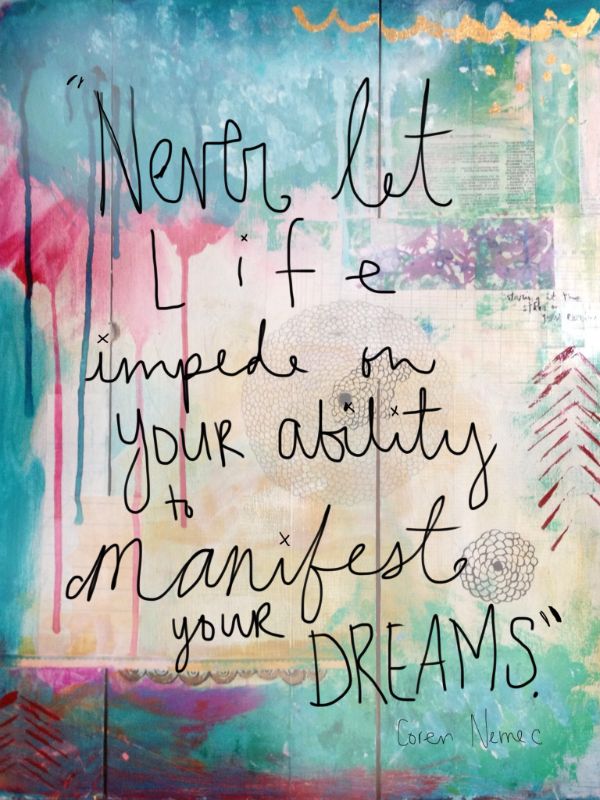 "Never let
Life
impede on
your ability
to
manifest
your
DREAMS."
Coren Nemec